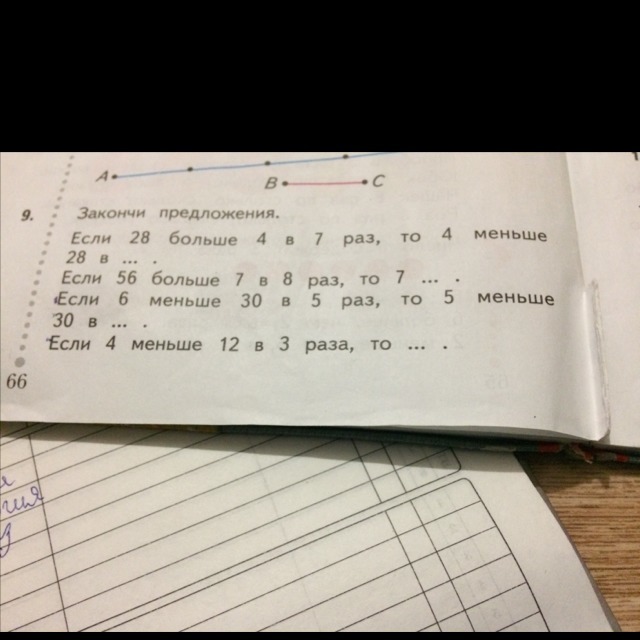 A
B C
9. Закончи предложения.
Если 28 больше 4 в 7 раз, то 4 меньше
28 в ... .
Если 56 больше 7 в 8 раз, то 7 ... .
Если 6 меньше 30 в 5 раз, то 5 меньше
30 в ... .
Если 4 меньше 12 в 3 раза, то ... .
66